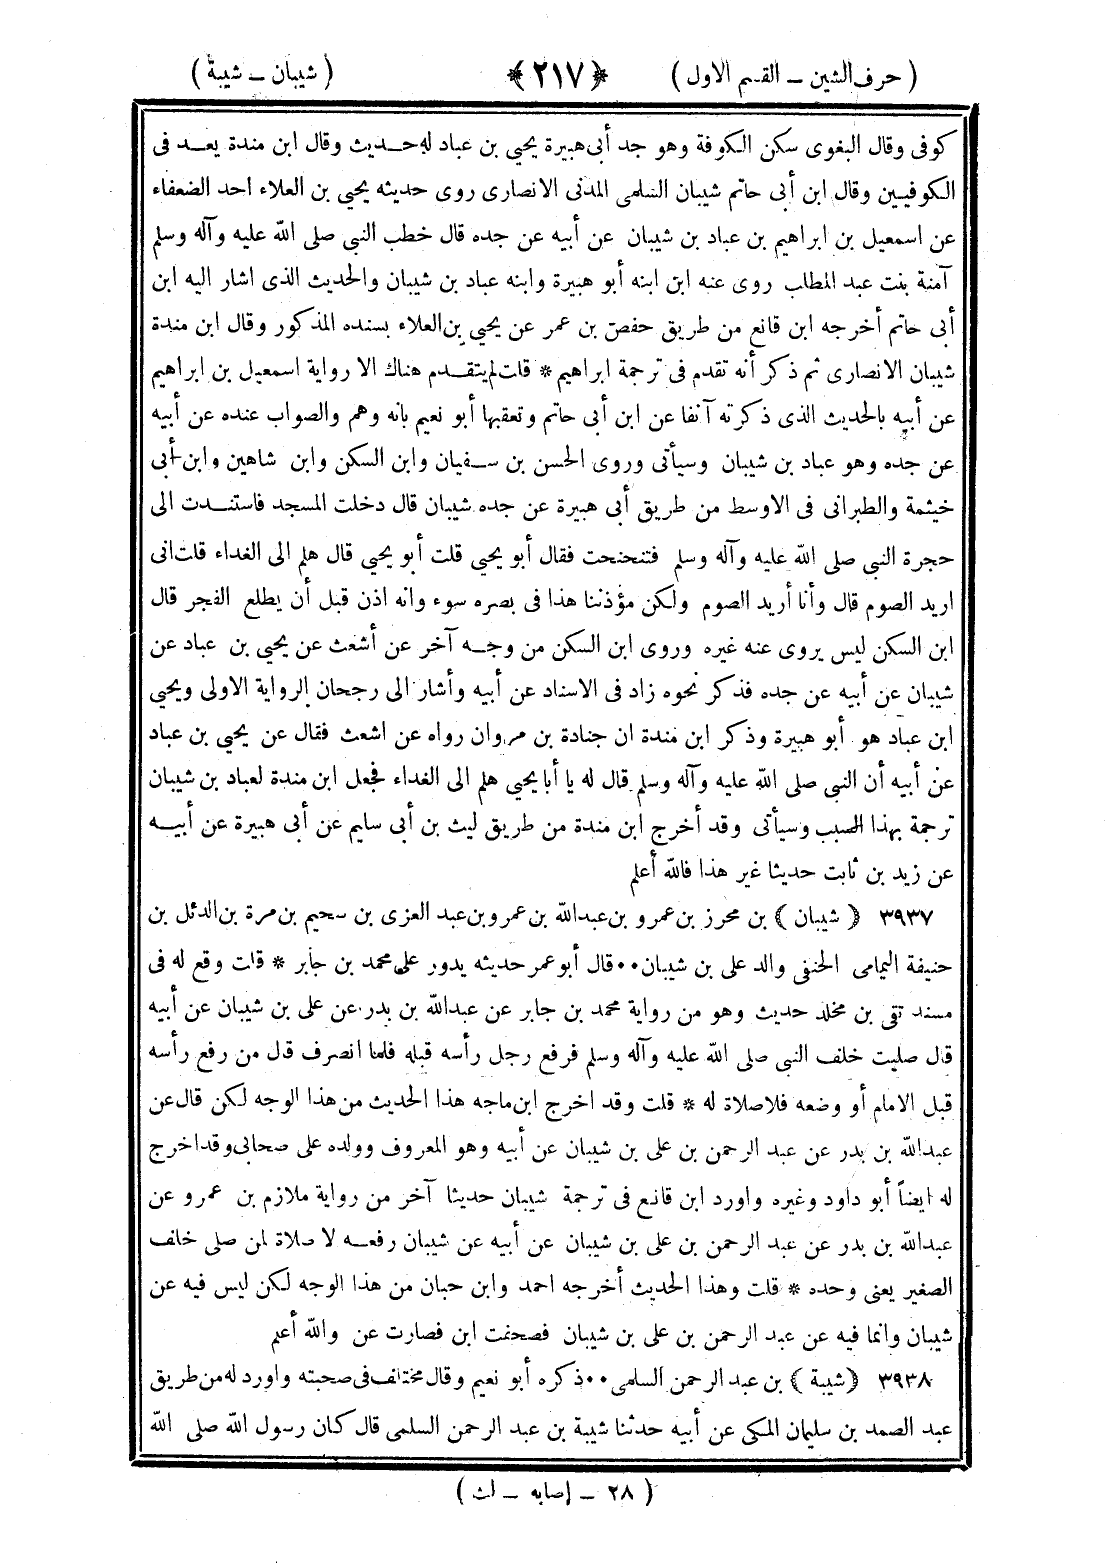 ( حرف الشين – القسم الاول ) ﴿ ٢١٧ ﴾ ( شيبان – شيبة )
كوفى وقال البغوى سكن الكوفة وهو جد أبى هبيرة يحيي بن عباد له حديث وقال ابن مندة يعد فى
الكوفيين وقال ابن أبى حاتم شيبان السلمى المدنى الانصارى روى حديثه يحيي بن العلاء احد الضعفاء
عن اسمعيل بن ابراهيم بن عباد بن شيبان عن أبيه عن جده قال خطب النبي صلى الله عليه وآله وسلم
آمنة بنت عبد المطلب روى عنه ابن ابنه أبو هبيرة وابنه عباد بن شيبان والحديث الذى اشار اليه ابن
أبى حاتم أخرجه ابن قانع من طريق حفص بن عمر عن يحيي بن العلاء بسنده المذكور وقال ابن مندة
شيبان الانصارى ثم ذكر أنه تقدم فى ترجمة ابراهيم * قلت لم يتقدم هناك الا رواية اسمعيل بن ابراهيم
عن أبيه بالحديث الذى ذكرته آنفا عن ابن أبى حاتم وتعقبها أبو نعيم بانه وهم والصواب عنده عن أبيه
عن جده وهو عباد بن شيبان وسيأتى وروى الحسن بن سفيان وابن السكن وابن شاهين وابن أبى
خيثمة والطبرانى فى الاوسط من طريق أبى هبيرة عن جده شيبان قال دخلت المسجد فاستندت الى
حجرة النبي صلى الله عليه وآله وسلم فتنحنحت فقال أبو يحيي قلت أبو يحيي قال هلم الى الغداء قلت انى
اريد الصوم قال وأنا أريد الصوم ولكن مؤذننا هذا فى بصره سوء وانه اذن قبل أن يطلع الفجر قال
ابن السكن ليس يروى عنه غيره وروى ابن السكن من وجه آخر عن أشعث عن يحيي بن عباد عن
شيبان عن أبيه عن جده فذكر نحوه زاد فى الاسناد عن أبيه وأشار الى رجحان الرواية الاولى ويحيي
ابن عباد هو أبو هبيرة وذكر ابن مندة ان جنادة بن مروان رواه عن اشعث فقال عن يحيي بن عباد
عن أبيه أن النبي صلى الله عليه وآله وسلم قال له يا أبا يحيي هلم الى الغداء فجعل ابن مندة لعباد بن شيبان
ترجمة بهذا السبب وسيأتى وقد أخرج ابن مندة من طريق ليث بن أبى سليم عن أبى هبيرة عن أبيه
عن زيد بن ثابت حديثا غير هذا فالله أعلم
٣٩٣٧ ﴿ شيبان ﴾ بن محرز بن عمرو بن عبدالله بن عمرو بن عبد العزى بن سحيم بن مرة بن الدئل بن
حنيفة اليمامى الحنفى والد على بن شيبان •• قال أبو عمر حديثه يدور على محمد بن جابر * قلت وقع له فى
مسند تقى بن مخلد حديث وهو من رواية محمد بن جابر عن عبدالله بن بدر عن على بن شيبان عن أبيه
قال صليت خلف النبي صلى الله عليه وآله وسلم فرفع رجل رأسه قبله فلما انصرف قال من رفع رأسه
قبل الامام أو وضعه فلا صلاة له * قلت وقد اخرج ابن ماجه هذا الحديث من هذا الوجه لكن قال عن
عبدالله بن بدر عن عبد الرحمن بن على بن شيبان عن أبيه وهو المعروف وولده على صحابى وقد اخرج
له ايضاً أبو داود وغيره واورد ابن قانع فى ترجمة شيبان حديثا آخر من رواية ملازم بن عمرو عن
عبدالله بن بدر عن عبد الرحمن بن على بن شيبان عن أبيه عن شيبان رفعه لا صلاة لمن صلى خلف
الصغير يعنى وحده * قلت وهذا الحديث أخرجه احمد وابن حبان من هذا الوجه لكن ليس فيه عن
شيبان وانما فيه عن عبد الرحمن بن على بن شيبان فصحفت ابن فصارت عن والله أعلم
٣٩٣٨ ﴿ شيبة ﴾ بن عبد الرحمن السلمى •• ذكره أبو نعيم وقال مختلف فى صحبته واورد له من طريق
عبد الصمد بن سليمان المكى عن أبيه حدثنا شيبة بن عبد الرحمن السلمى قال كان رسول الله صلى الله
( ٢٨ – إصابه – لث )